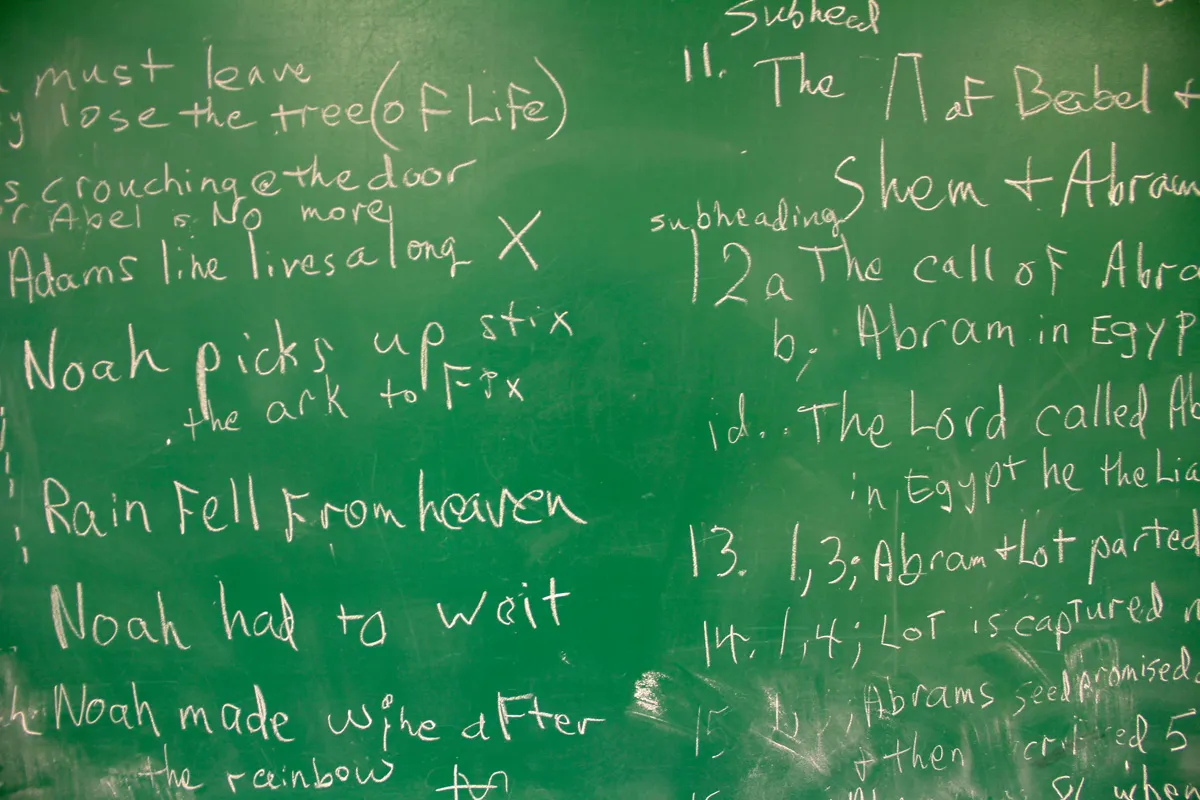 must leave
lose the tree (of Life)
s crouching @ the door
r Abel is No more
Adams line lives a long X
Noah picks up stix
the ark to Fix
Rain Fell From heaven
Noah had to wait
h Noah made wine aFter
the rainbow
Subhead
11. The Π of Beabel +
Shem + Abram
subheading
12 a The call oF Abra
b; Abram in Egyp
1d.. The Lord called Ab
in Egypt he the Lia
13. 1,3; Abram + Lot parted
14. 1,4; LoT is captured
15 Abrams seed promised
+ then 5
when